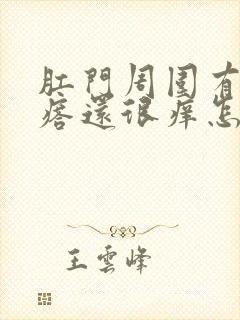 肛門周圍有
痞還很痒怎
王雲峰